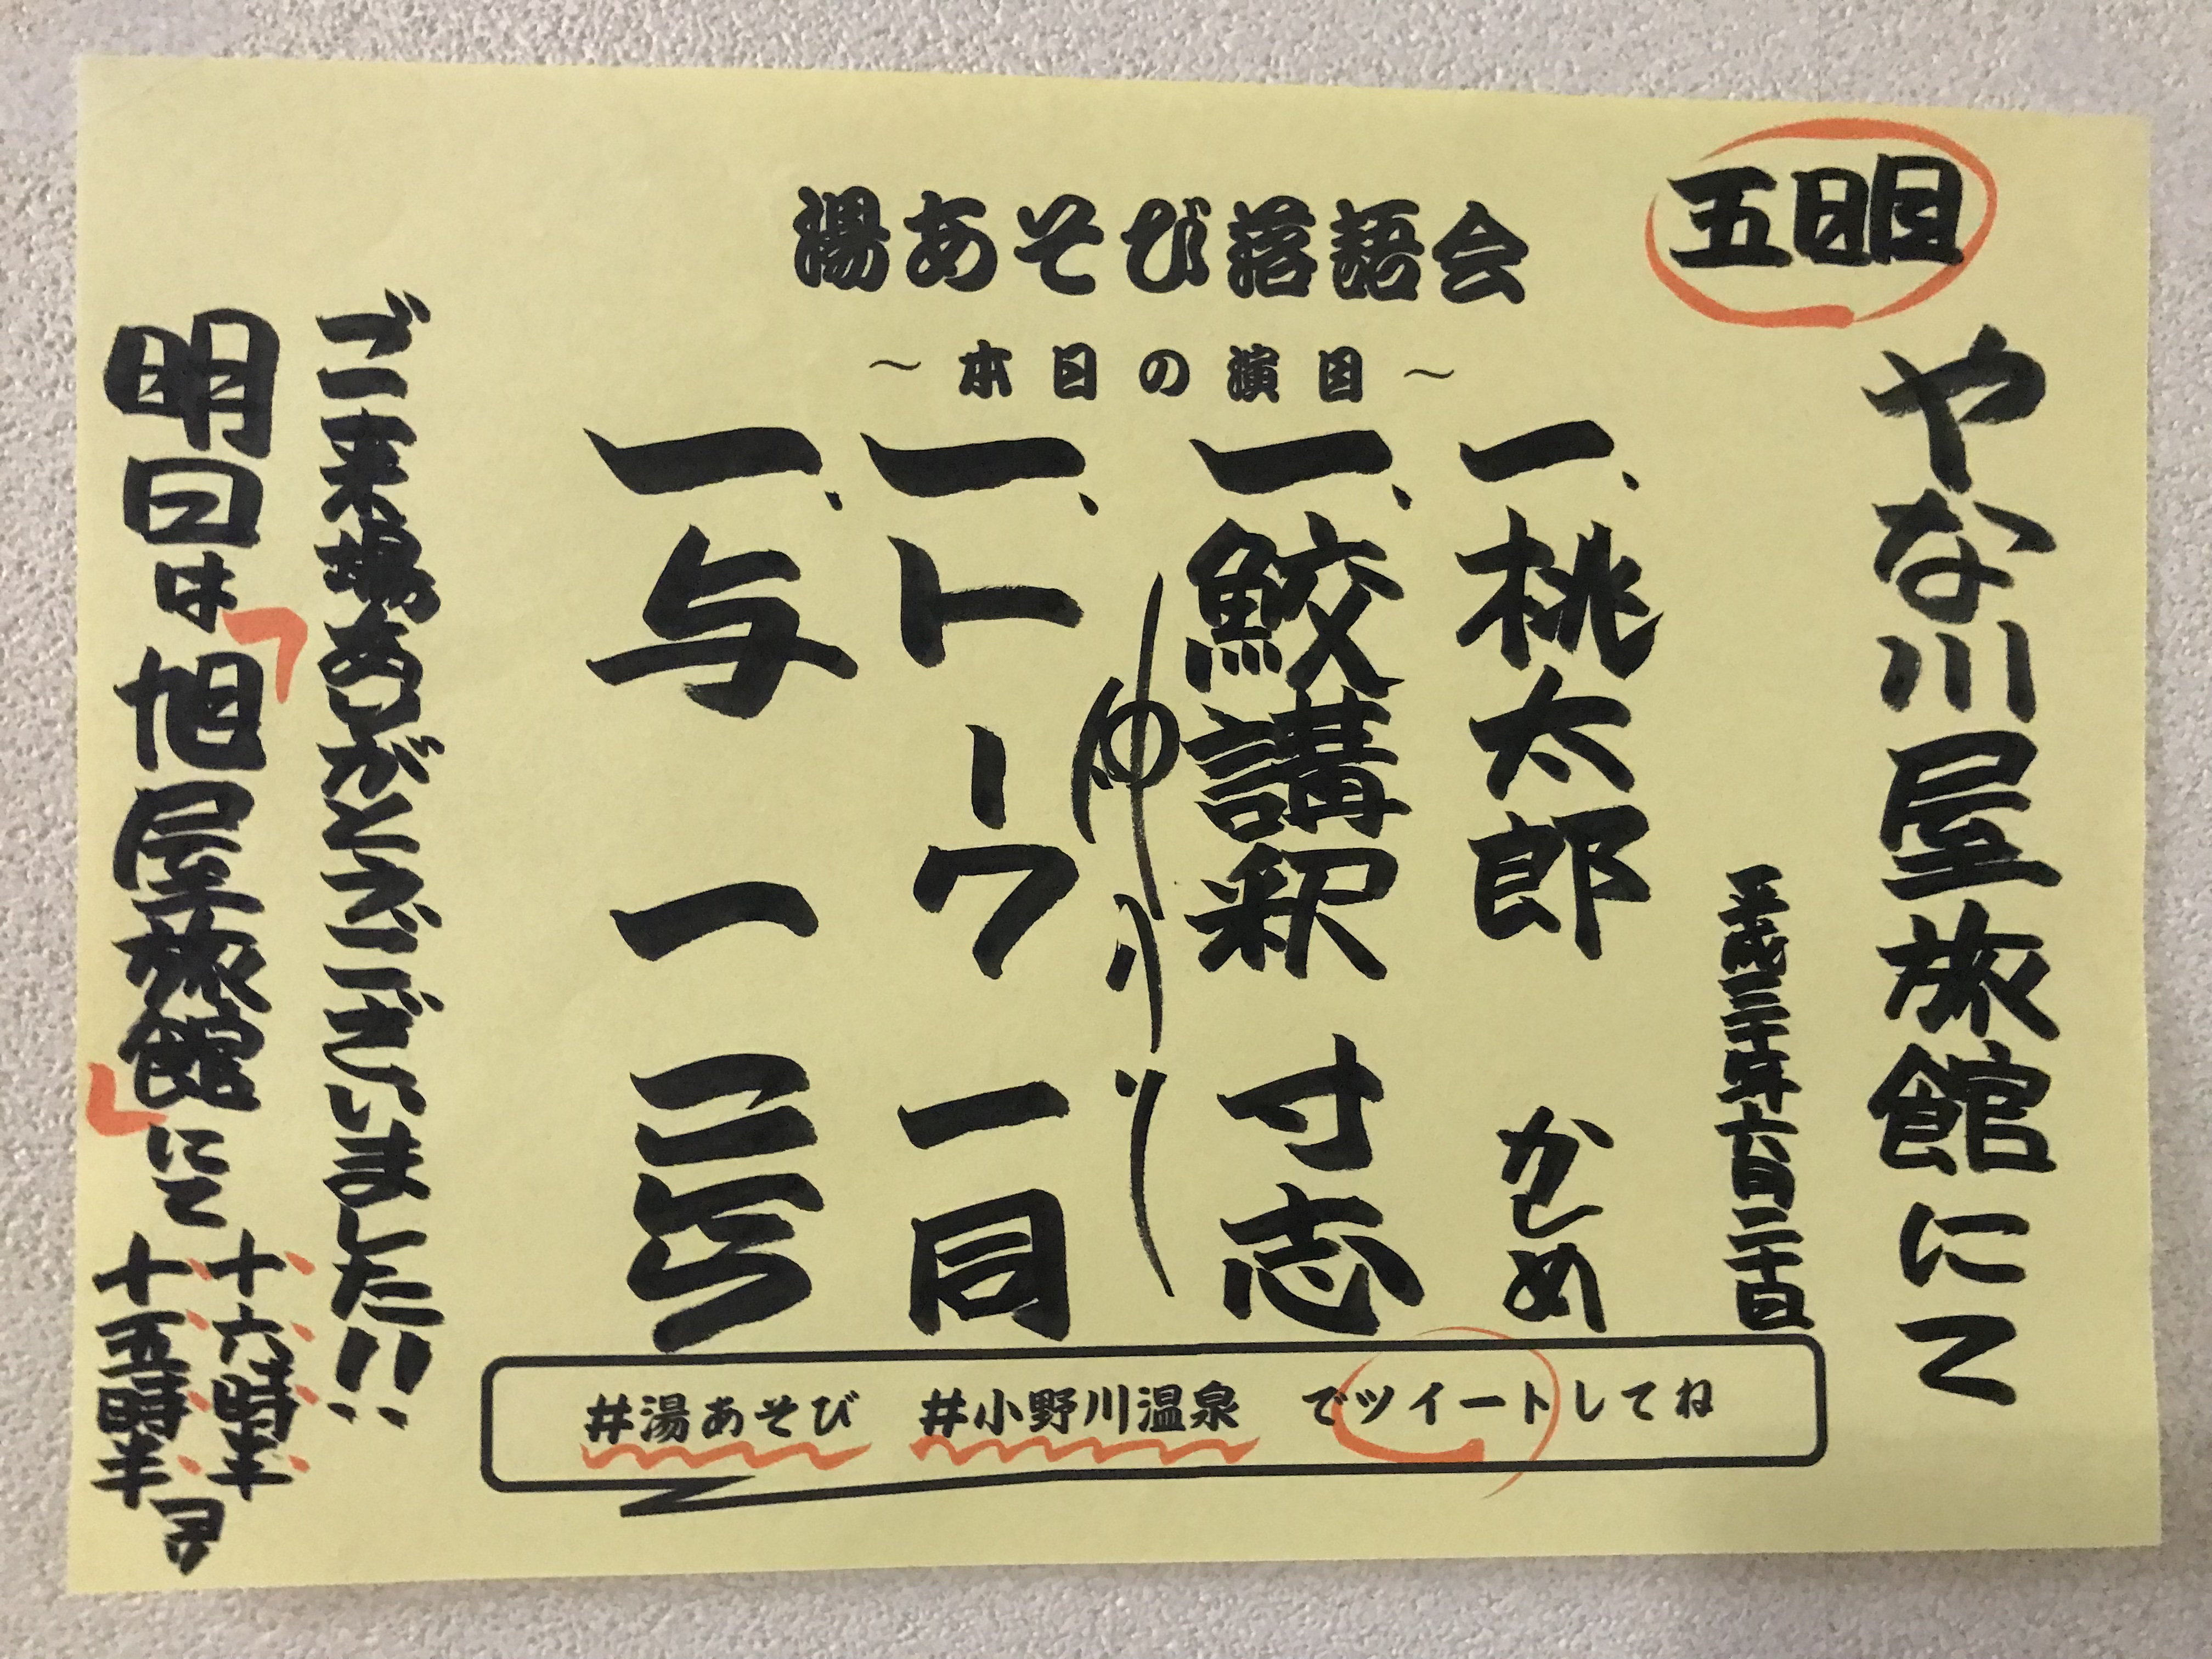 五日目
湯あそび落語会
～本日の演目～
やな川屋旅館にて
平成三十年六月二十日
一、桃太郎 かしめ
一、鮫講釈 寸志
一、トーク 一同
一、与一
ご来場ありがとうございました!!
明日は「旭屋旅館」にて
十六時半
十五時半
#湯あそび #小野川温泉 でツイートしてね